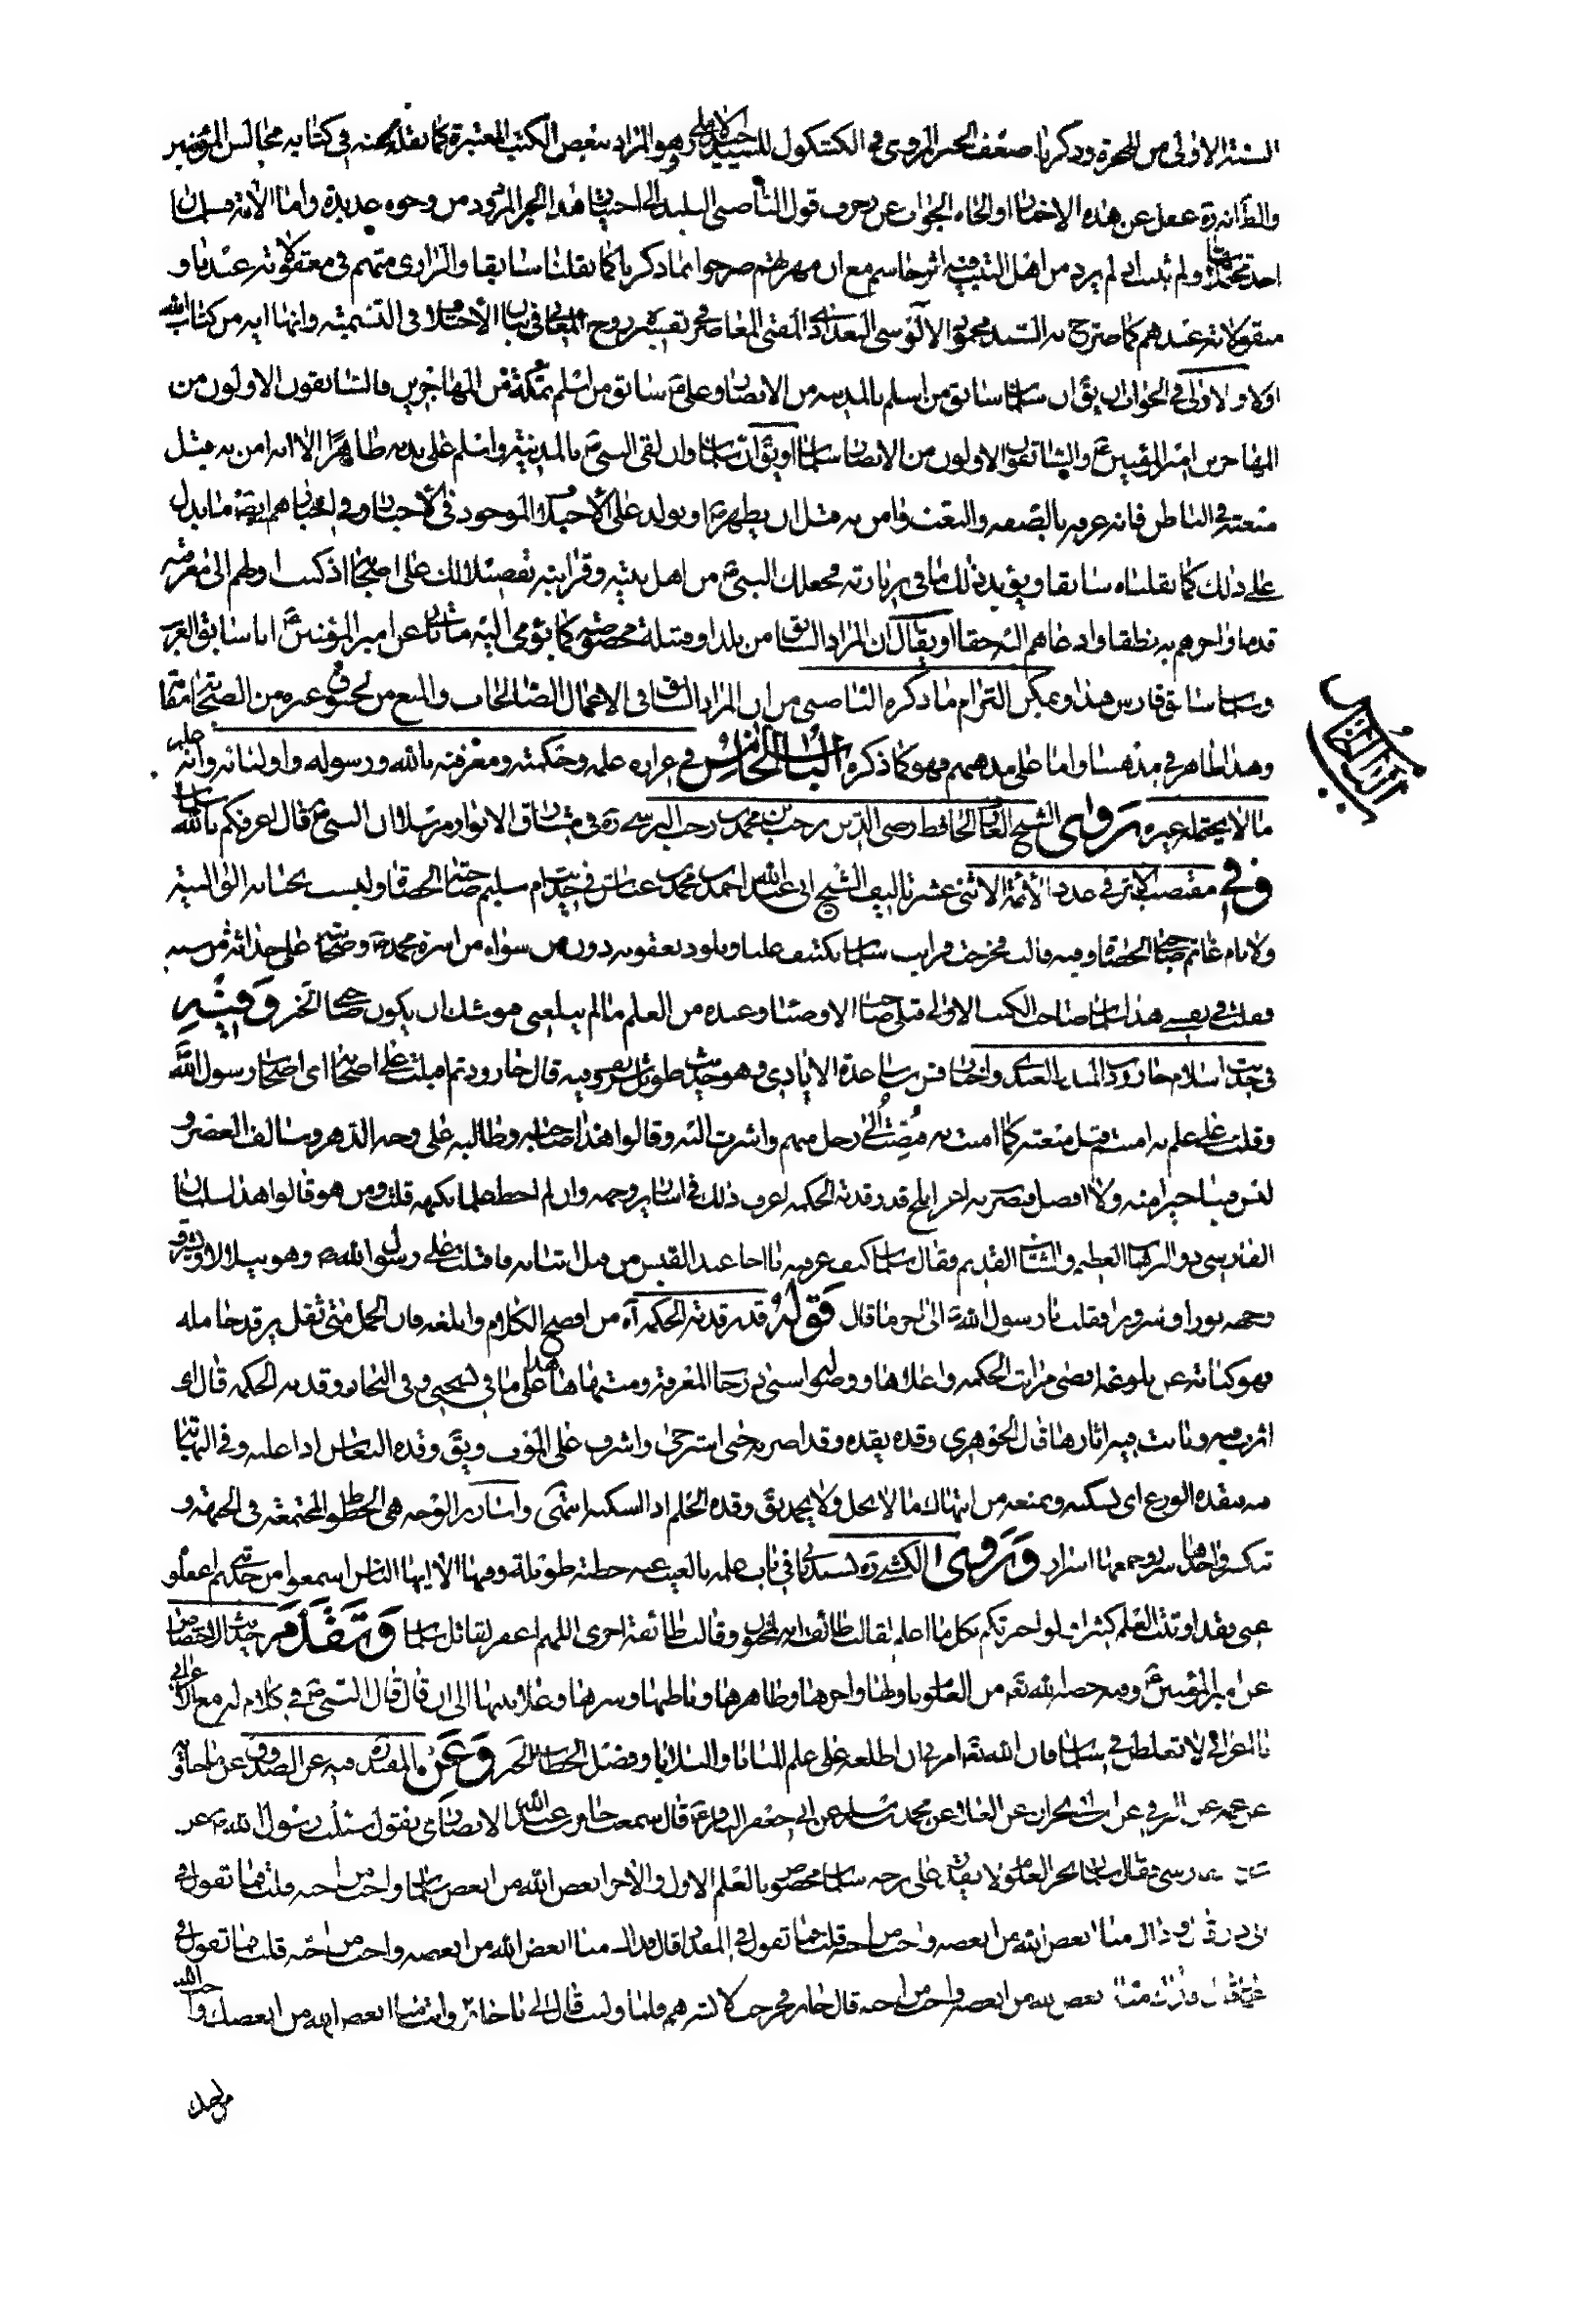 السنة الاولى من الهجرة وذكرنا ضعف الخبر المروى في الكشكول للسيد حيدر الاملي وهو المراد ببعض الكتب المعتبرة كما نقله عنه في كتابه مجالس المؤمنين
عن هذه الاخبار او الجاه الجواب عن زخرف قول الناصبى البليد الى اختيار هذا الخبر المزود من وجوه عديدة واما الآية
احد ولم يرد من اهل البيت فيه اثر خاسم مع ان صرحوا بما ذكرنا كما نقلنا سابقا والرازى متهم في معقولاته عندنا و
منقولاته عندهم كما صرح به السيد محمود الالوسى البغدادى المفتى المعاصر في تفسيره روح المعاني في بيان الاختلاف في التسمية وانها اية من كتاب الله
اولا والاولى في الجواب ان يق ان سلمان سابق من اسلم بالمدينة من الانصار وعلى ع سابق من اسلم بمكة من المهاجرين فالسابقون الاولون من
المهاجرين امير المؤمنين ع والسابقون الاولون من الانصار سلمان او يق ان سلمان وان لقى النبى ص بالمدينة واسلم على يديه ظاهرا الا انه امن به قبل
مبعثه في الباطن فانه عرفه بالصفة والنعت وامن به قبل ان يظهر ص الموجود في الاخبار وفي ما يدل
على ذلك كما نقلناه سابقا ويؤيد ذلك ما في زيارته فجعلك النبى ص من اهل بيته وقرابته تفضيلا لك على اصحابه اذ كنت اولهم الى معرفته
قدما واخرهم به نطقا وادعاهم اليه حقا او يقال ان المراد السابق من بلد او قبيلة مخصوصة كما يؤمى اليه ما عن امير المؤمنين ع انا سابق العرب
وسلمان سابق فارس هذا ويمكن التزام ما ذكره الناصبى من ان المراد السابق في الاعمال الصالحات والمنع من لحوق غيره من الصحابة
وهذا ظاهر في مذهبنا واما على مذهبهم فهو كما ذكره الباب الخامس في غزارة علمه وحكمته ومعرفته بالله ورسوله واوليائه وانه
ما لا يحتمله غيره روى الشيخ العارف الحافظ رضى الدين رجب بن محمد بن رجب البرسى ره في مشارق الانوار مرسلا ان النبى ص قال اعرفكم بالله سلمان
وفي مقتضب الاثر في عدد الائمة الاثنى عشر تاليف الشيخ ابى عبد الله احمد بن محمد بن عياش في حديث ام سليم صاحبة الحصاة وليست بحبابة الوالبية
ولا بام غانم صاحبة الحصاة وفيه قالت فخرجت فرايت سلمان يكتنف عليا ويلوذ بعقوته دون من سواه من اسرة محمد ص وصحابته على حداثة من سنه
فقلت في نفسى هذا سلمان صاحب الكتب الاولى قبلى صاحب الاوصياء وعنده من العلم ما لم يبلغنى فيوشك ان يكون صاحبى الخبر وفيه
في حديث اسلام جارود بن المنذر العبدى واخبار قس بن ساعدة الايادى وهو حديث طويل شريف وفيه قال جارود ثم اقبلت على اصحابه اى اصحاب رسول الله
وقلت على علم به امنتم قبل مبعثه كما امنت به فنصت الى رجل منهم واشارت اليه وقالوا هذا صاحبه وطالبه على وجه الدهر وسالف العصر و
ليس فينا خير منه ولا افضل فبصرت به اغر ابلج قد وقذته الحكمة اعرف ذلك في اسارير وجهه وان لم احط علما بكنهه قلت ومن هو قالوا هذا سلمان
الفارسى ذو البرهان العظيم والشان القديم فقال سلمان كيف عرفته يا اخا عبد القيس من قبل اتيانه فاقبلت على رسول الله ص وهو يتلالا ويشرق
وجهه نورا وسرورا فقلت يا رسول الله ص الى اخر ما قال قوله قد وقذته الحكمة اه من افصح الكلام وابلغه فان الحمل متى ثقل يرقد حامله
فهو كناية عن بلوغه اقصى مراتب الحكمة واعلاها ووصوله اسنى درجات المعرفة ومنتهاها هذا على ما في نسختى وفى البحار وقد به الحكمة قال اى
اثرت فيه وبانت فيه اثارها قال الجوهرى وقذه يقذه وقذا ضربه حتى استرخى واشرف على الموت ويق وقذه النعاس اذا غلبه وفى النهاية
فيه فيقذه الورع اى يسكنه ويمنعه من انتهاك ما لا يحل ولا يجمل يق وقذه الحلم اذا سكنه انتهى واسارير الوجه هى الخطوط المجتمعة في الجبهة و
تنكسر واحدها سر وجمعها اسرار وروى الكشى ره باب علمه بالغيب خطبة طويلة وفيها الا ايها الناس اسمعوا من حديثى ثم اعقلوه
عنى فقد اوتيت العلم كثيرا ولو اخبرتكم بكل ما اعلم لقالت طائفة انه لمجنون وقالت طائفة اخرى اللهم اغفر لقاتل سلمان وتقدم حديث الاختصاص
عن امير المؤمنين ع وفيه خصه الله تع من العلوم باولها واخرها وظاهرها وباطنها وسرها وعلانيتها الى ان قال قال النبى ص في كلام له مع الاعرابى
يا اعرابى لا تغلطن في سلمان فان الله تع امرنى ان اطلعه على علم المنايا والبلايا وفصل الخطاب الخبر وعن المفيد ره فيه عن الصدوق عن ماجيلويه
عن عمه عن البرقى عن ابن ابى نجران عن العلا عن محمد بن مسلم عن ابى جعفر الباقر ع قال سمعت جابر بن عبد الله الانصارى يقول سئلت رسول الله ص عن
فقال سلمان بحر العلم لا يقدر على نزحه سلمان مخصوص بالعلم الاول والاخر ابغض الله من ابغض سلمان واحب من احبه قلت فما تقول في
ابى ذر قال وذاك منا ابغض الله من ابغضه واحب من احبه قلت فما تقول في المقداد قال وذاك منا ابغض الله من ابغضه واحب من احبه قلت فما تقول في
عمار قال وذاك منا ابغض الله من ابغضه واحب من احبه قال جابر فخرجت لابشرهم فلما وليت قال الى يا جابر وانت منا ابغض الله من ابغضك واحب الله
من احبك
الباب الخامس